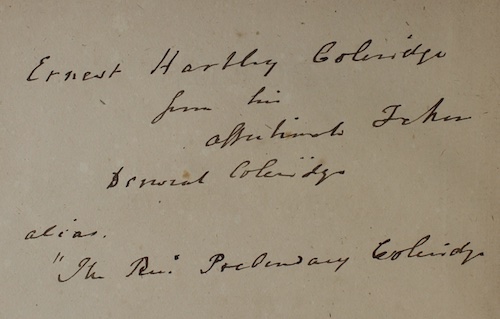 Ernest Hartley Coleridge
from his
affectionate Father
Derwent Coleridge
alias.
"The Rev. Prebendary Coleridge